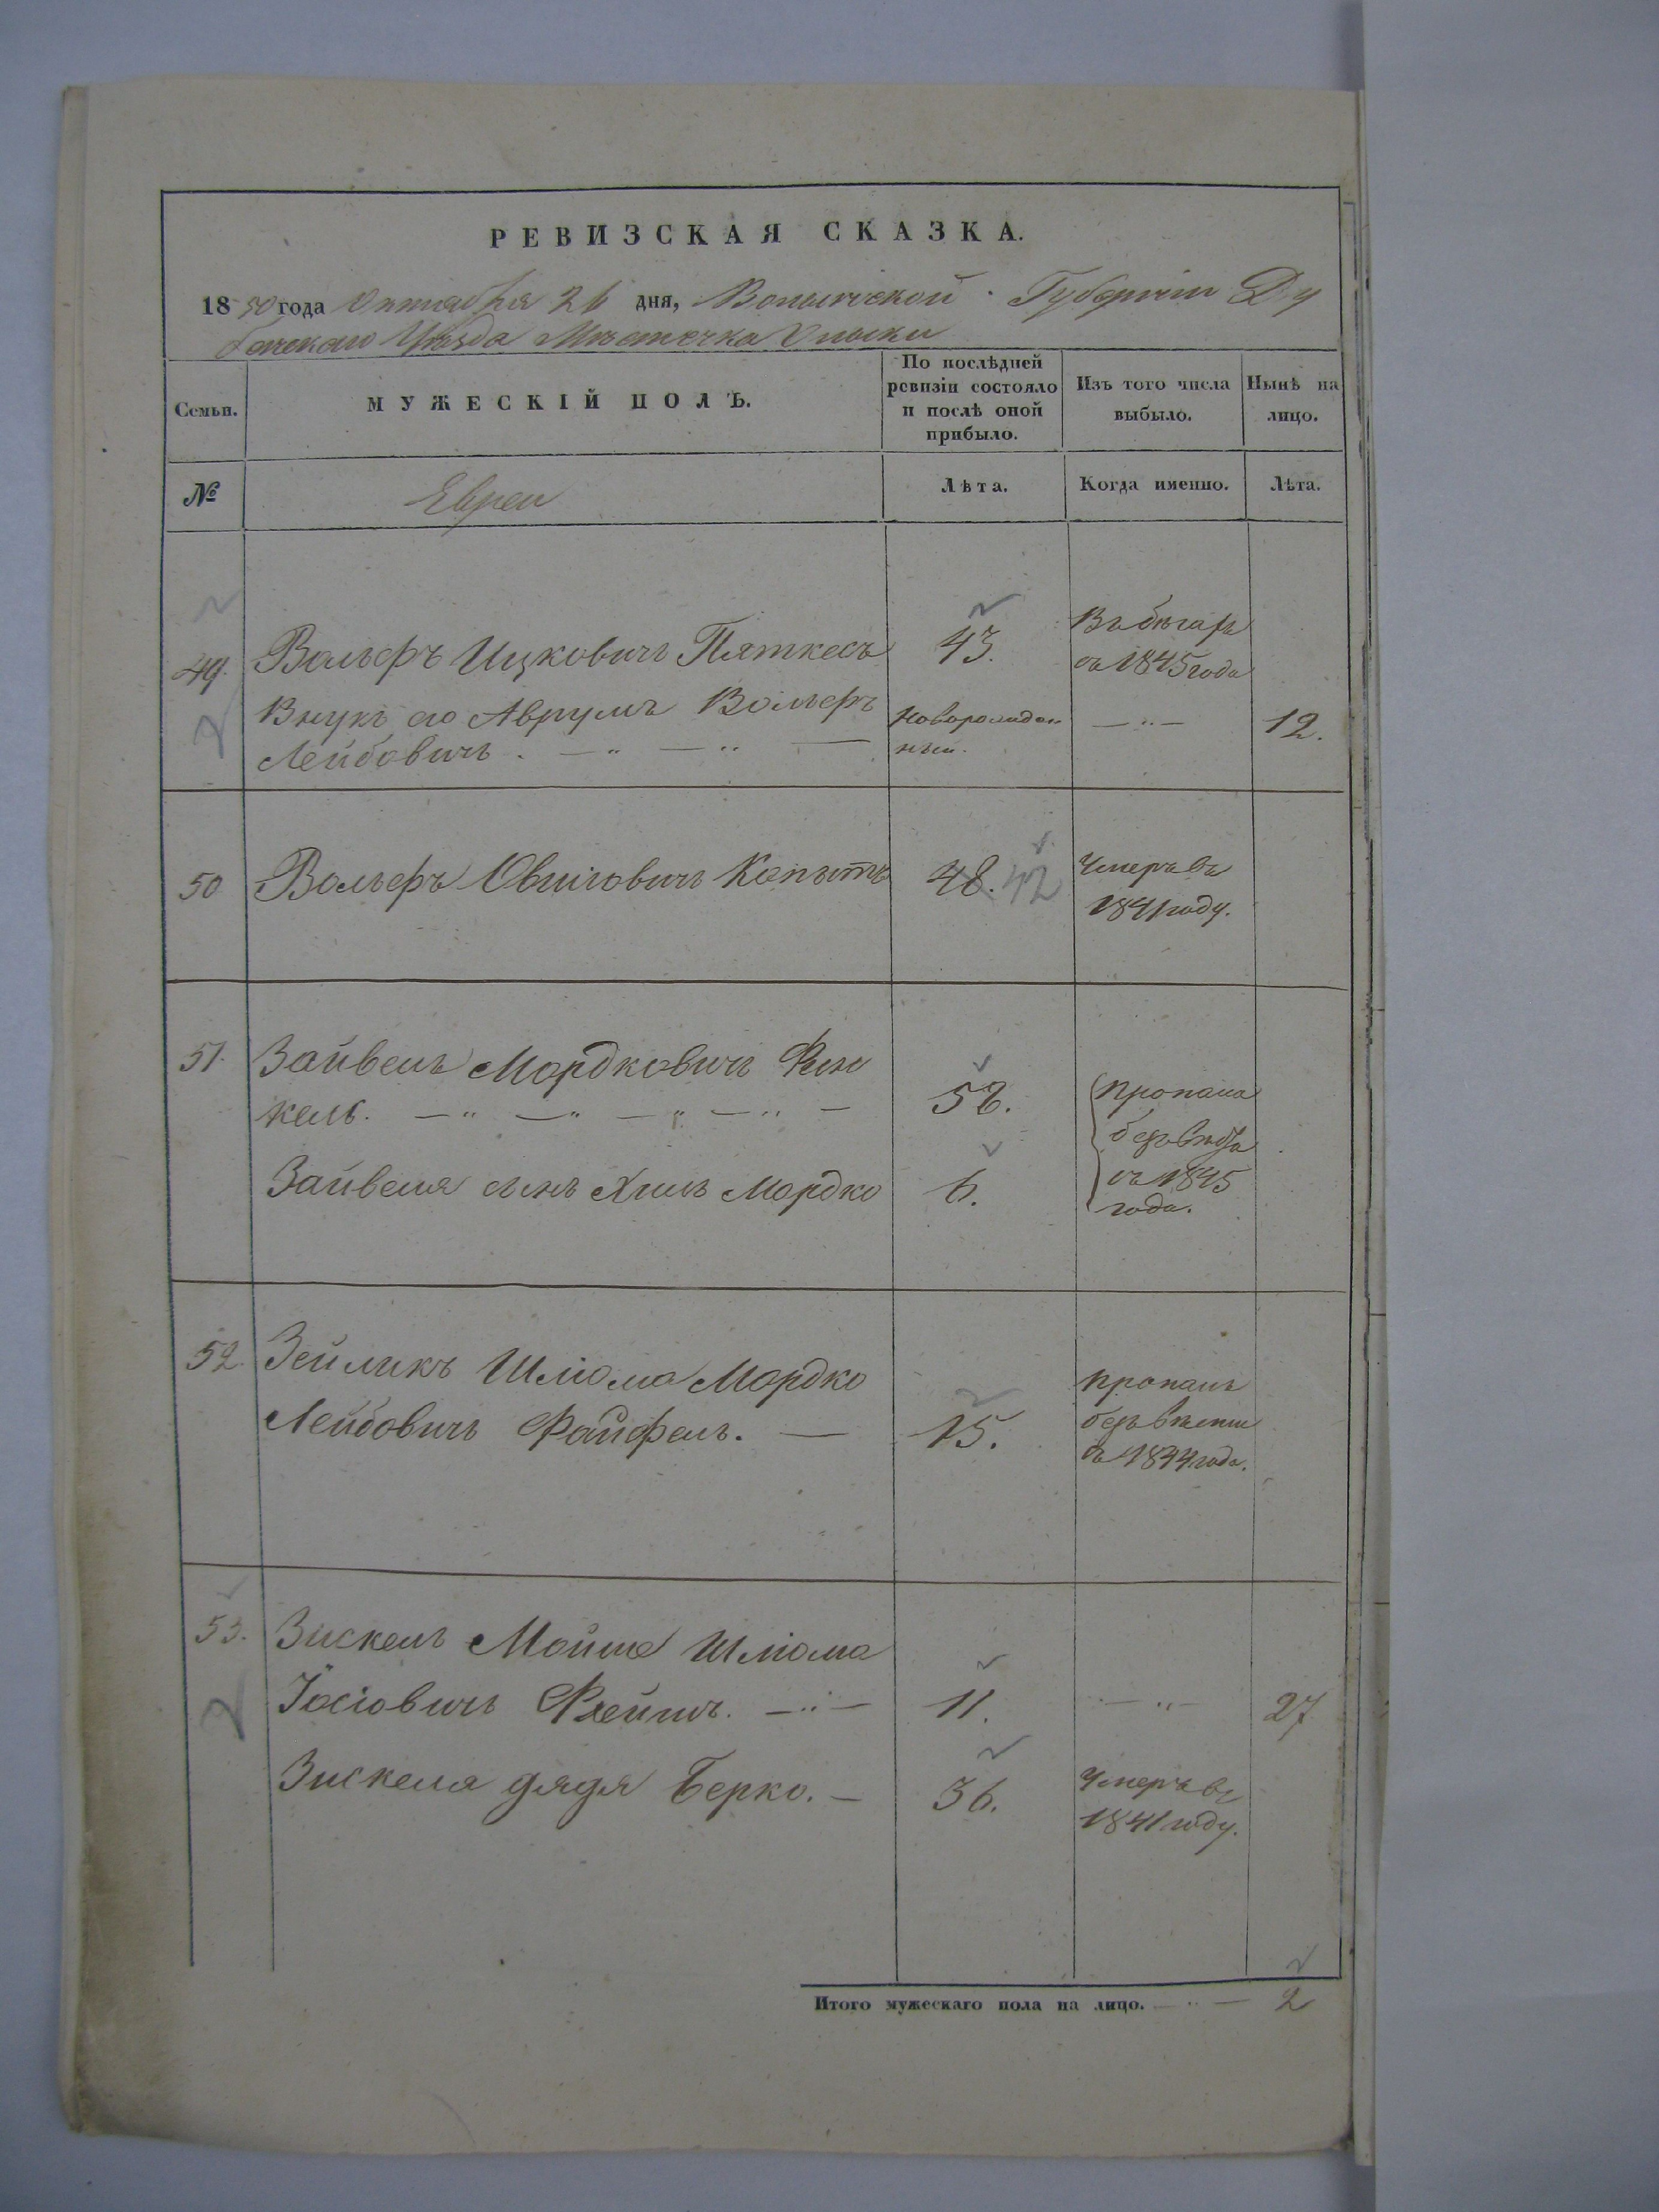 РЕВИЗСКАЯ СКАЗКА.
1850 года Октября 26 дня, Волынской Губерніи Ду
бенскаго Уѣзда Мѣстечка Олыки
Семьи.
МУЖЕСКІЙ ПОЛЪ.
По послѣдней
ревизіи состояло
и послѣ оной
прибыло.
Изъ того числа
выбыло.
Нынѣ на
лицо.
№
Евреи
Лѣта.
Когда именно.
Лѣта.
49. Вольфъ Ицковичъ Пяткесъ 43. Въ бѣгахъ
съ 1845 года
Внукъ его Аврумъ Вольфъ Новорожден — " — 12.
Лейбовичъ. — " — " — ный.
50 Вольфъ Овшіовичъ Копытъ 48. 42 Умеръ въ
1841 году.
51. Зайвель Мордковичъ Фин
кель. — " — " — " — " — 52. Пропали
безъ вѣсти
Зайвеля сынъ Хаимъ Мордко 6. съ 1845
года.
52. Зейликъ Шліома Мордко Пропалъ
Лейбовичъ Файфель. — 15. безъ вѣсти
съ 1844 года.
53. Зискель Мойше Шліома
Іосіовичъ Флейшъ. — " — 11. — " — 27
Зискеля дядя Берко. — 36. Умеръ въ
1841 году.
Итого мужескаго пола на лицо. — " — 2